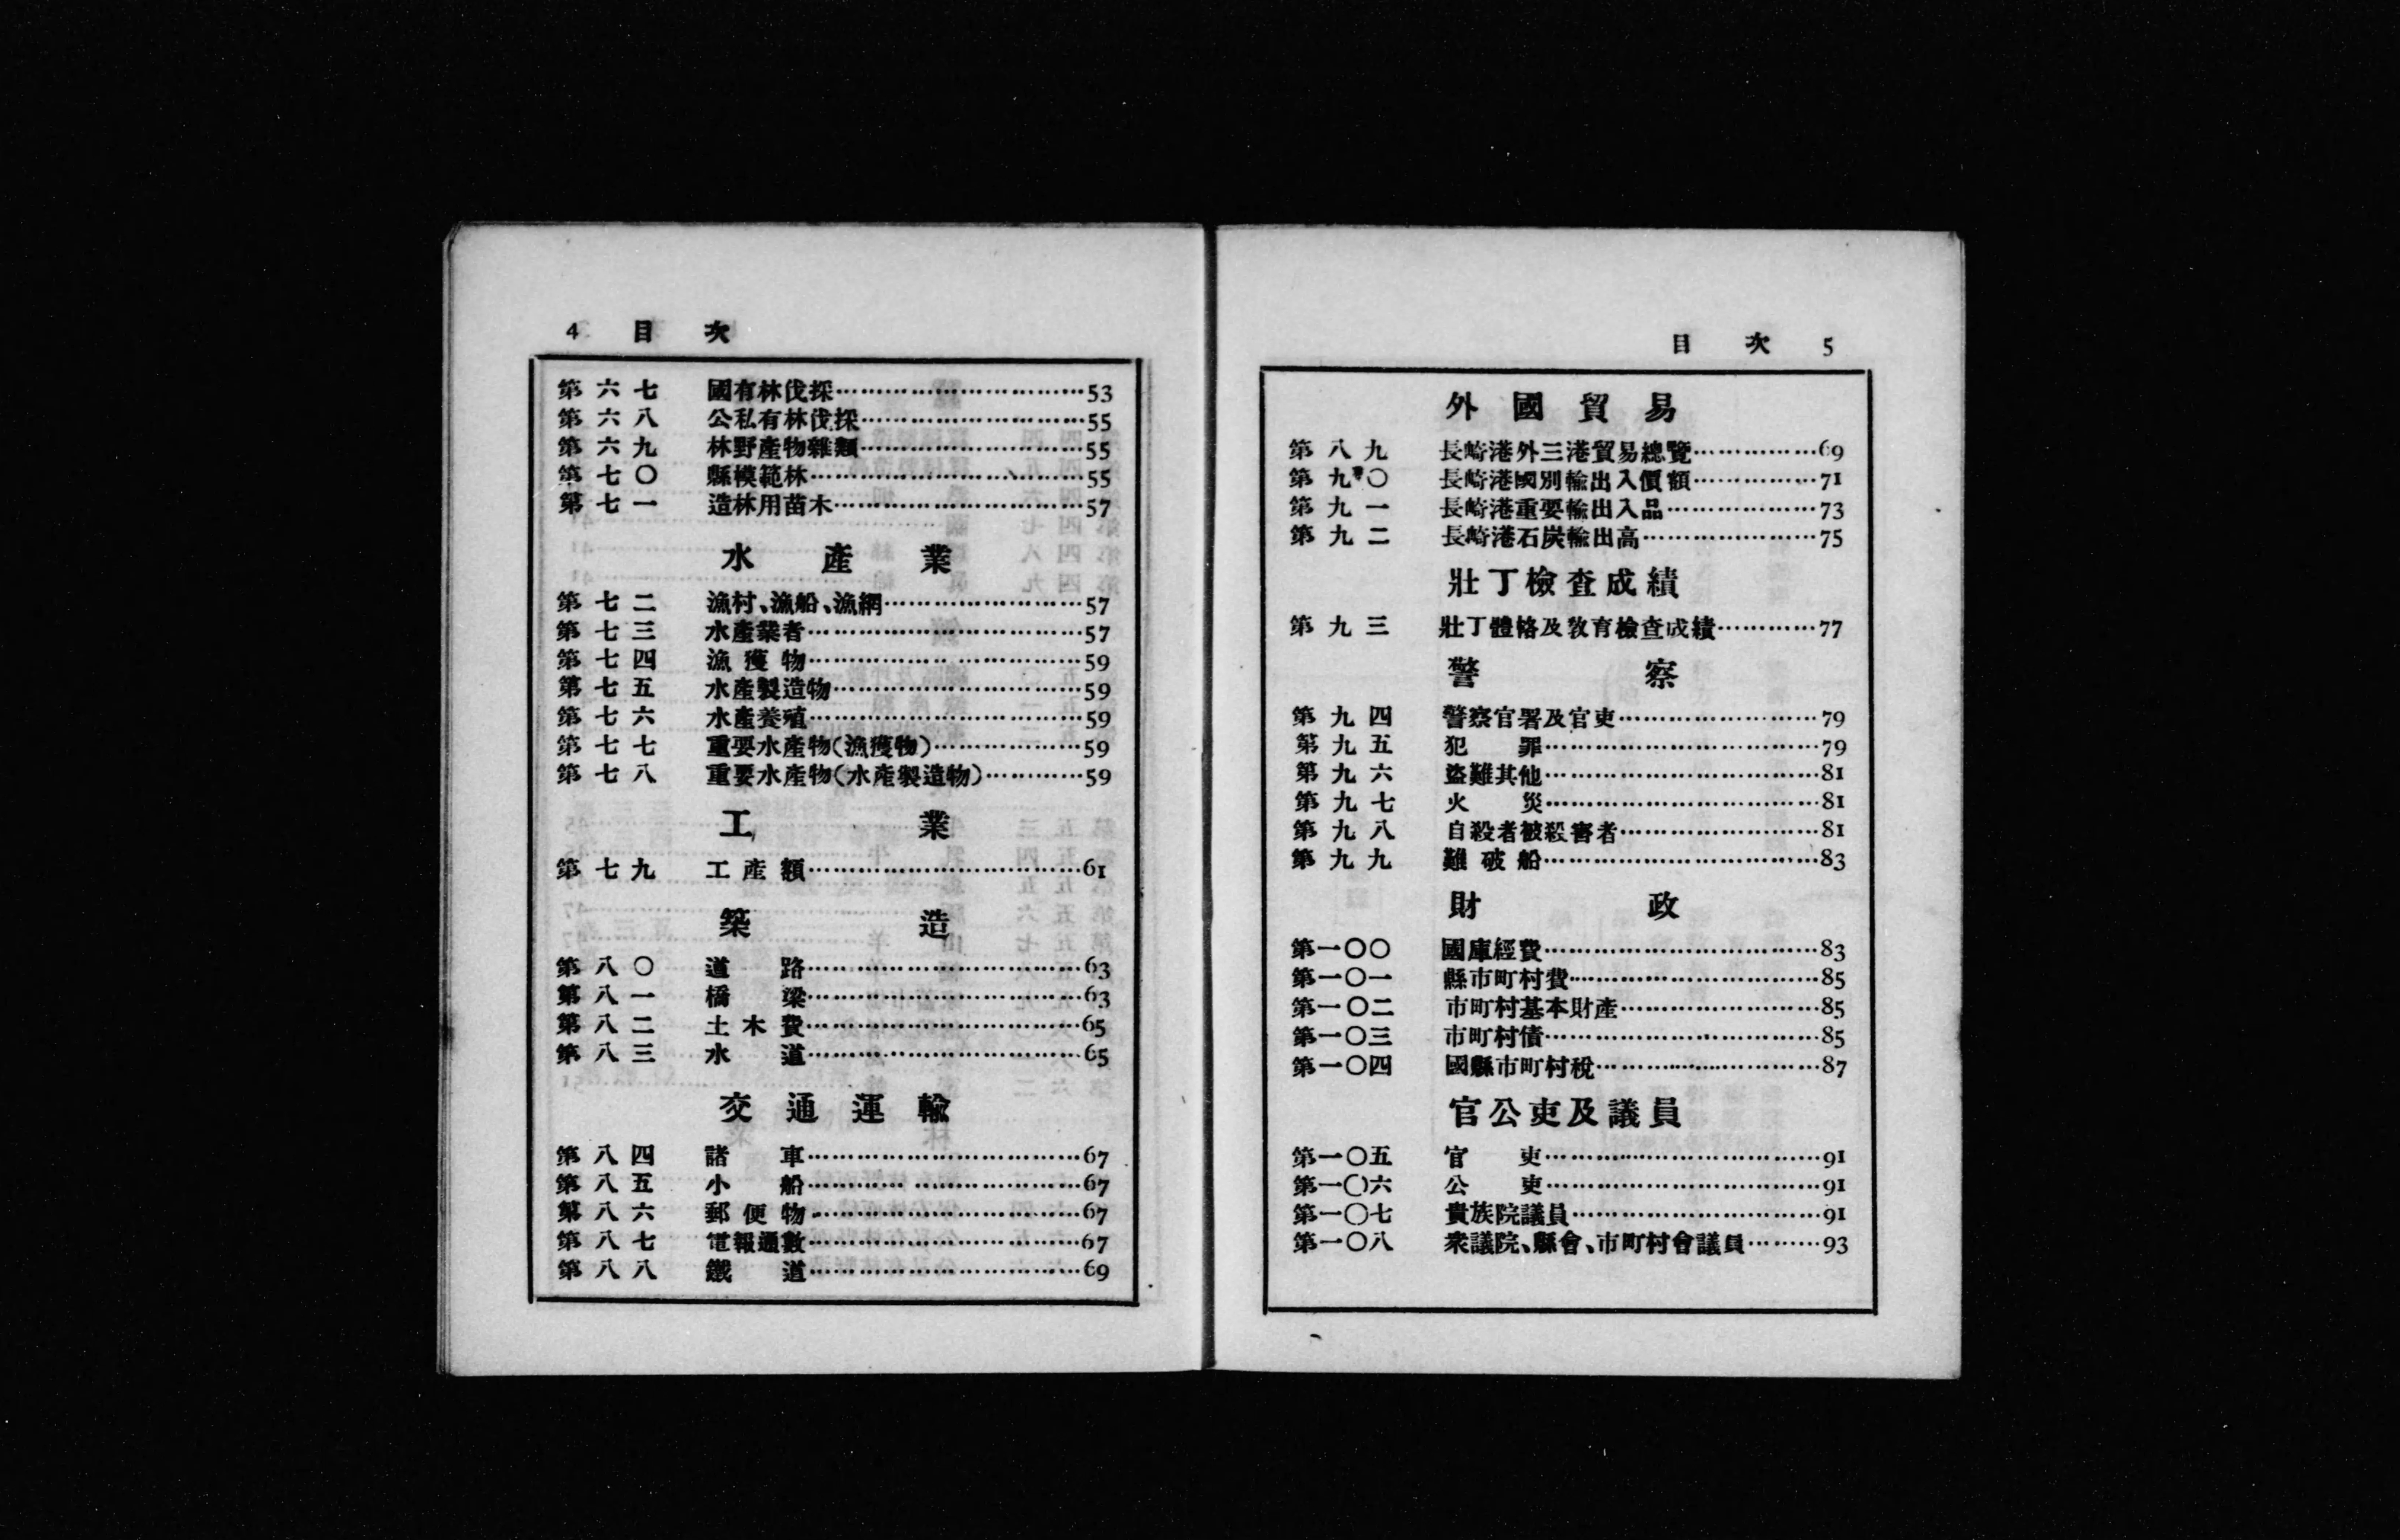 4 目次
第六七 國有林伐採……………………53
第六八 公私有林伐採……………………55
第六九 林野產物雜類……………………55
第七〇 縣模範林……………………55
第七一 造林用苗木……………………57
水產業
第七二 漁村、漁船、漁網……………………57
第七三 水產業者……………………57
第七四 漁獲物……………………59
第七五 水產製造物……………………59
第七六 水產養殖……………………59
第七七 重要水產物(漁獲物)………………59
第七八 重要水產物(水產製造物)…………59
工業
第七九 工產額……………………61
築造
第八〇 道路……………………63
第八一 橋梁……………………63
第八二 土木費……………………65
第八三 水道……………………65
交通運輸
第八四 諸車……………………67
第八五 小船……………………67
第八六 郵便物……………………67
第八七 電報通數……………………67
第八八 鐵道……………………69
目次 5
外國貿易
第八九 長崎港外三港貿易總覽……………69
第九〇 長崎港國別輸出入價額……………71
第九一 長崎港重要輸出入品………………73
第九二 長崎港石炭輸出高…………………75
壯丁檢查成績
第九三 壯丁體格及敎育檢查成績…………77
警察
第九四 警察官署及官吏……………………79
第九五 犯罪……………………79
第九六 盜難其他……………………81
第九七 火災……………………81
第九八 自殺者被殺害者……………………81
第九九 難破船……………………83
財政
第一〇〇 國庫經費……………………83
第一〇一 縣市町村費……………………85
第一〇二 市町村基本財產……………………85
第一〇三 市町村債……………………85
第一〇四 國縣市町村稅……………………87
官公吏及議員
第一〇五 官吏……………………91
第一〇六 公吏……………………91
第一〇七 貴族院議員……………………91
第一〇八 衆議院、縣會、市町村會議員………93